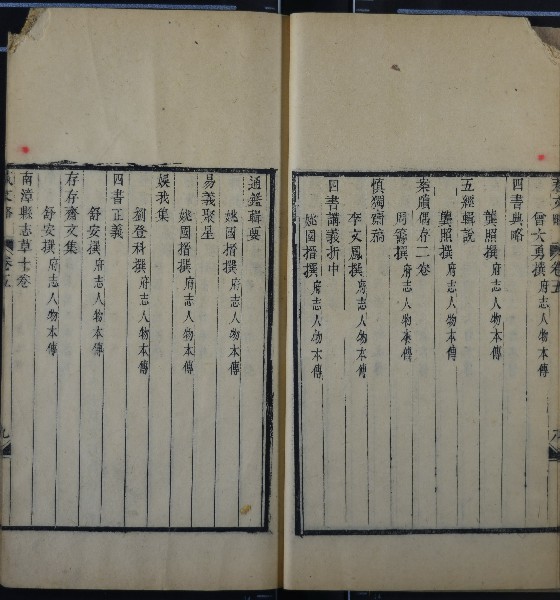 曾大勇撰府志人物本傳
四書典略
龔照撰府志人物本傳
五經輯說
龔照撰府志人物本傳
案牘偶存二卷
周霨撰府志人物本傳
慎獨齋稿
李文鳳撰府志人物本傳
四書講義折中
姚國搢撰府志人物本傳
通鑑聯要
姚國搢撰府志人物本傳
易義聚星
姚國搢撰府志人物本傳
娛我集
劉登科撰府志人物本傳
四書正義
舒安撰府志人物本傳
存存齋文集
舒安撰府志人物本傳
南漳縣志草十卷
卷五
九